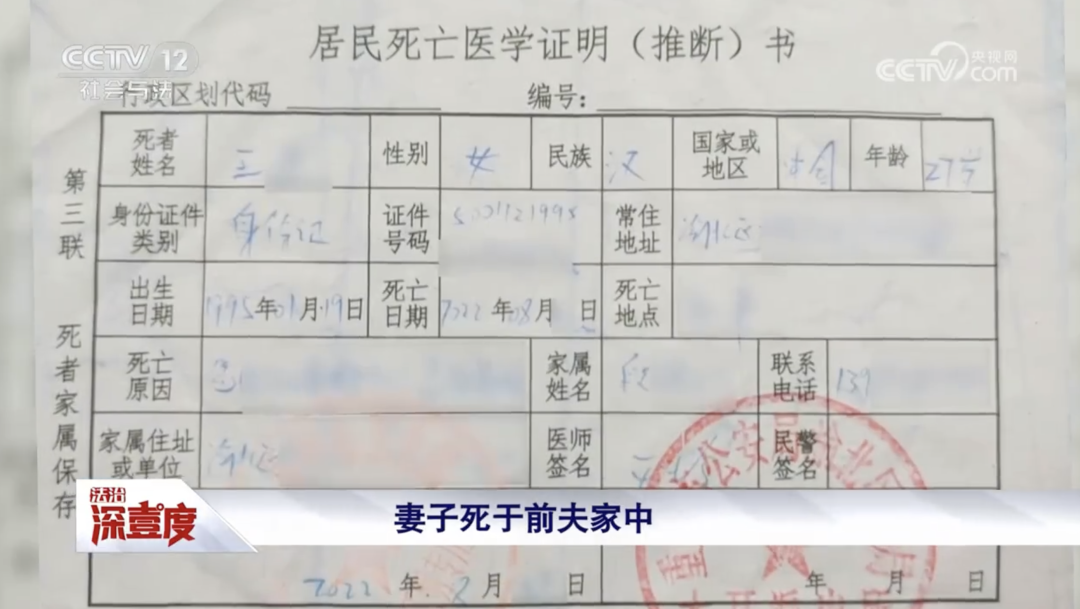 CCTV 12
社会与法
央视网
CCTV.com
居民死亡医学证明（推断）书
行政区划代码 编号：
第三联 死者家属保存
死者姓名 王 性别 女 民族 汉 国家或地区 中国 年龄 27岁
身份证件类别 身份证 证件号码 500112199 常住地址 渝北区
出生日期 1995年01月19日 死亡日期 2022年08月 日 死亡地点
死亡原因 家属姓名 联系电话 139
家属住址或单位 渝北区 医师签名 民警签名
公安局渝北区
法治深壹度
妻子死于前夫家中
2022年8月 日 年 月 日